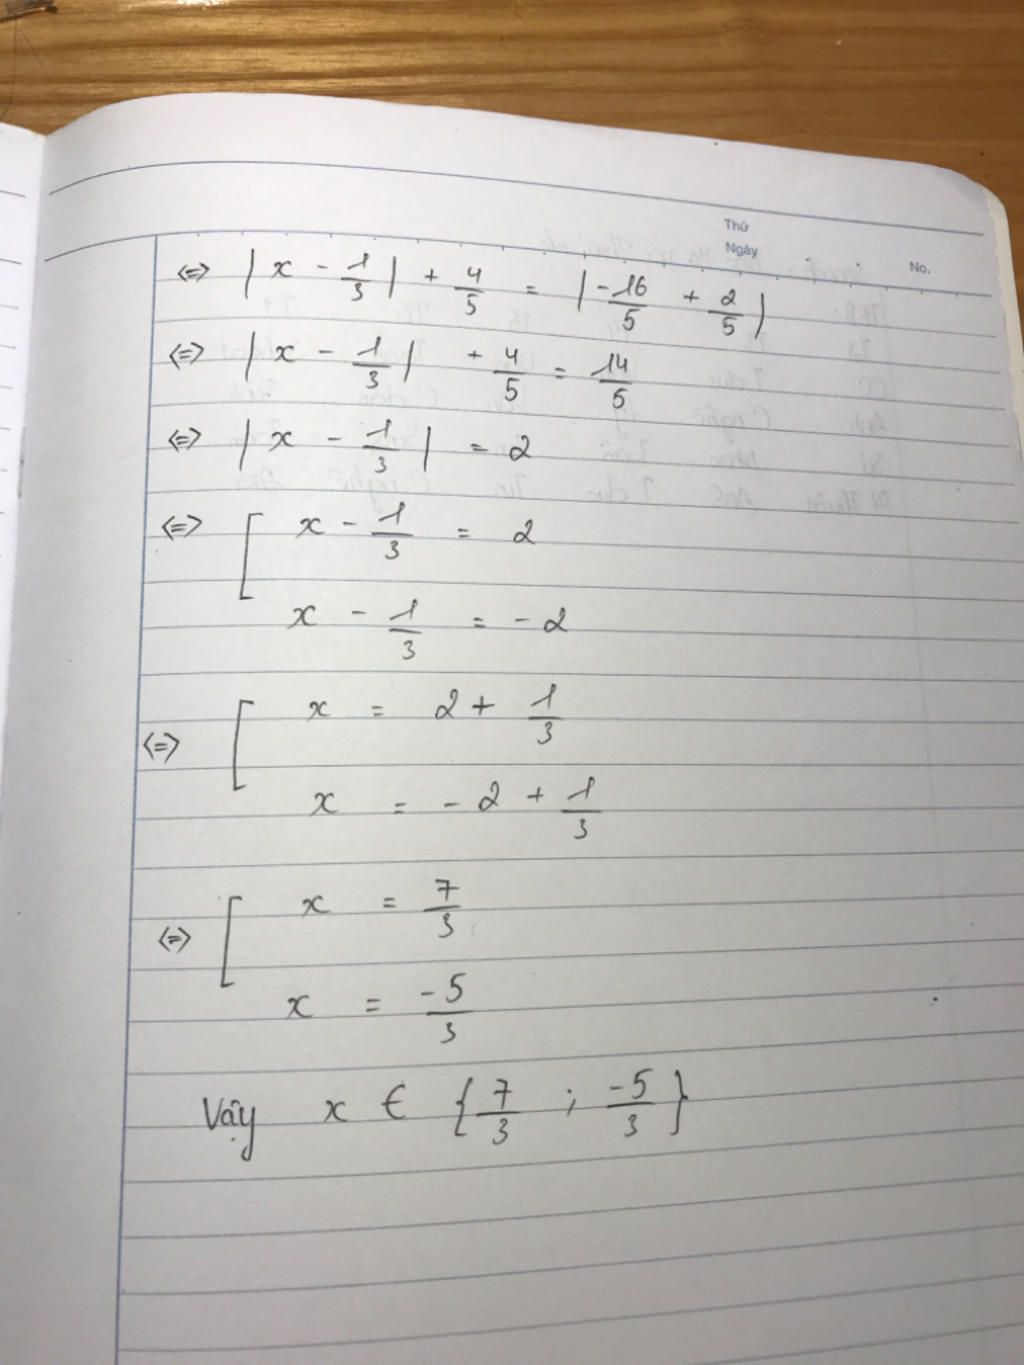 Thứ
Ngày
No.
<=> | x - 1/3 | + 4/5 = | -16/5 + 2/5 |
<=> | x - 1/3 | + 4/5 = 14/5
<=> | x - 1/3 | = 2
<=> [ x - 1/3 = 2
x - 1/3 = - 2
<=> [ x = 2 + 1/3
x = - 2 + 1/3
<=> [ x = 7/3
x = -5/3
Vậy x ∈ { 7/3 ; -5/3 }